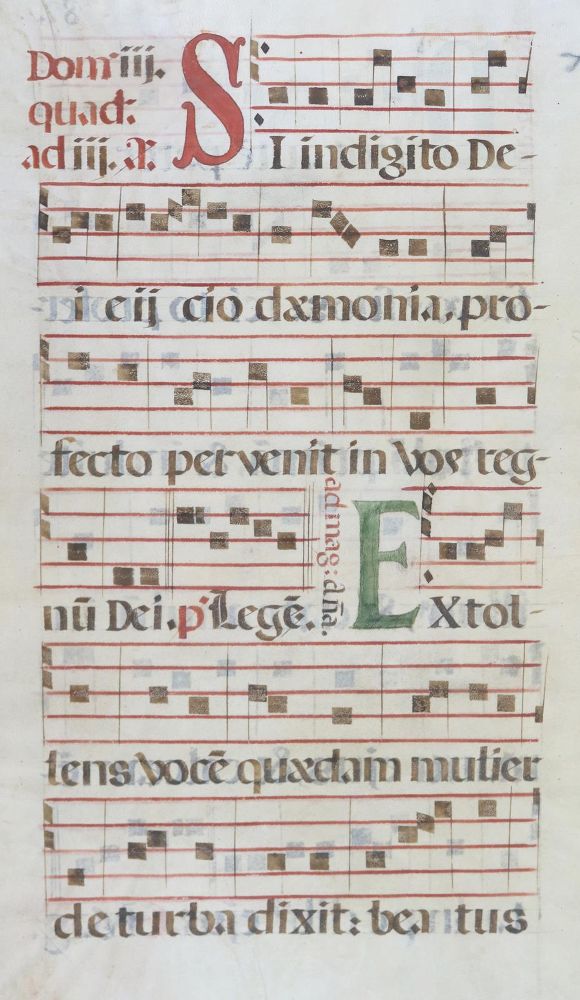 Dom iij.
quad:
ad iij. A.
SI in digito De-
i eij cio dæmonia, pro-
fecto pervenit in vos reg-
nū Dei. p' Legē. ad mag: añā. EXtol-
lens vocē quædam mulier
de turba dixit: bea tus